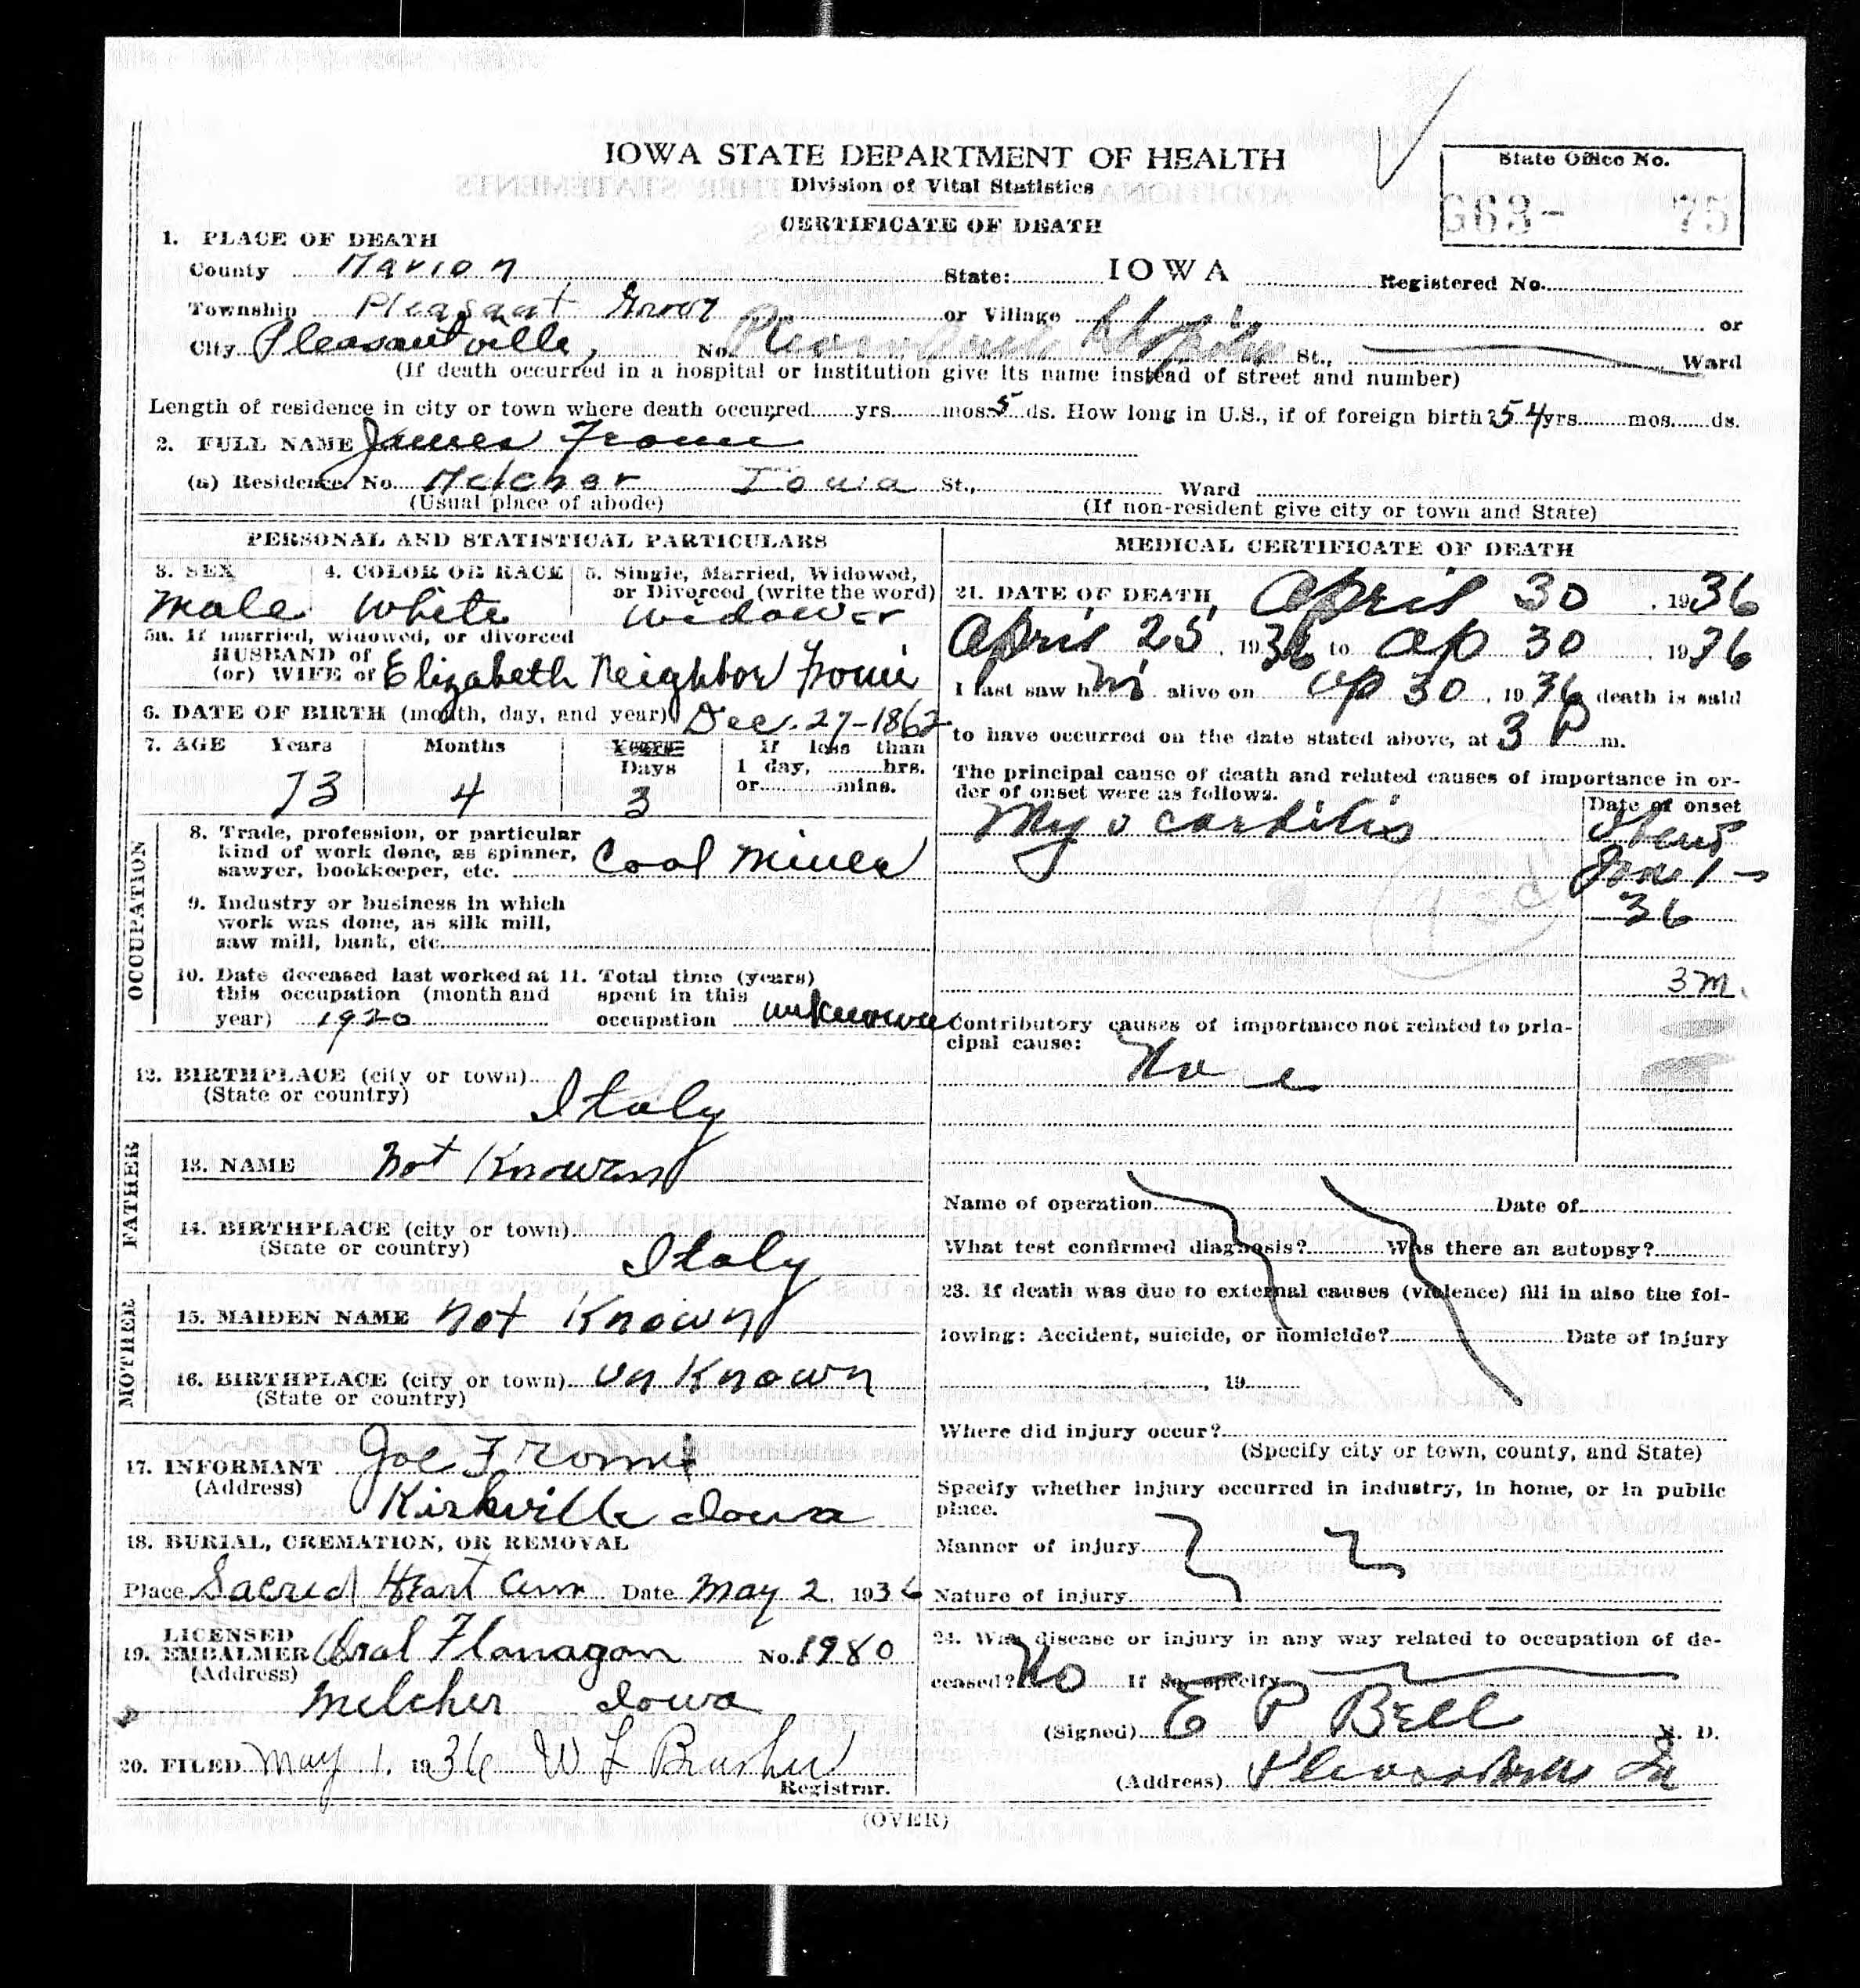 IOWA STATE DEPARTMENT OF HEALTH
Division of Vital Statistics
CERTIFICATE OF DEATH
State Office No.
G63- 75
1. PLACE OF DEATH
County Marion State: IOWA Registered No.
Township Pleasant Grove or Village or
City Pleasantville, No. St., Ward
(If death occurred in a hospital or institution give its name instead of street and number)
Length of residence in city or town where death occurred yrs. mos. 5 ds. How long in U.S., if of foreign birth? 54 yrs. mos. ds.
2. FULL NAME James Fromi
(a) Residence No. Melcher Iowa St., Ward
(Usual place of abode) (If non-resident give city or town and State)
PERSONAL AND STATISTICAL PARTICULARS
3. SEX 4. COLOR OR RACE 5. Single, Married, Widowed, or Divorced (write the word)
Male White Widower
5a. If married, widowed, or divorced
HUSBAND of
(or) WIFE of Elizabeth Neighbor Fromi
6. DATE OF BIRTH (month, day, and year) Dec. 27-1862
7. AGE Years Months Years Days If less than 1 day, hrs. or mins.
73 4 3
OCCUPATION
8. Trade, profession, or particular
kind of work done, as spinner,
sawyer, bookkeeper, etc. Coal Miner
9. Industry or business in which
work was done, as silk mill,
saw mill, bank, etc.
10. Date deceased last worked at this occupation (month and year) 1920
11. Total time (years) spent in this occupation unknown
12. BIRTHPLACE (city or town)
(State or country) Italy
FATHER
13. NAME Not Known
14. BIRTHPLACE (city or town)
(State or country) Italy
MOTHER
15. MAIDEN NAME Not Known
16. BIRTHPLACE (city or town) Un Known
(State or country)
17. INFORMANT Joe Fromi
(Address) Kirkville Iowa
18. BURIAL, CREMATION, OR REMOVAL
Place Sacred Heart Cem Date May 2, 1936
19. LICENSED EMBALMER Oral Flanagan No. 1980
(Address) Melcher Iowa
20. FILED May 1, 1936 W L Brusher
Registrar.
MEDICAL CERTIFICATE OF DEATH
21. DATE OF DEATH, April 30, 1936
April 25, 1936 to Ap 30, 1936
I last saw him alive on Ap 30, 1936 death is said
to have occurred on the date stated above, at 3 P m.
The principal cause of death and related causes of importance in or-
der of onset were as follows.
Date of onset
Myocarditis about
Jan 1 -
36
3 m.
Contributory causes of importance not related to prin-
cipal cause:
Name of operation Date of
What test confirmed diagnosis? Was there an autopsy?
23. If death was due to external causes (violence) fill in also the fol-
lowing: Accident, suicide, or homicide? Date of injury
, 19
Where did injury occur?
(Specify city or town, county, and State)
Specify whether injury occurred in industry, in home, or in public
place.
Manner of injury
Nature of injury
24. Was disease or injury in any way related to occupation of de-
ceased? No If so, specify
(Signed) E P Bell M. D.
(Address) Pleasantville Ia
(OVER)